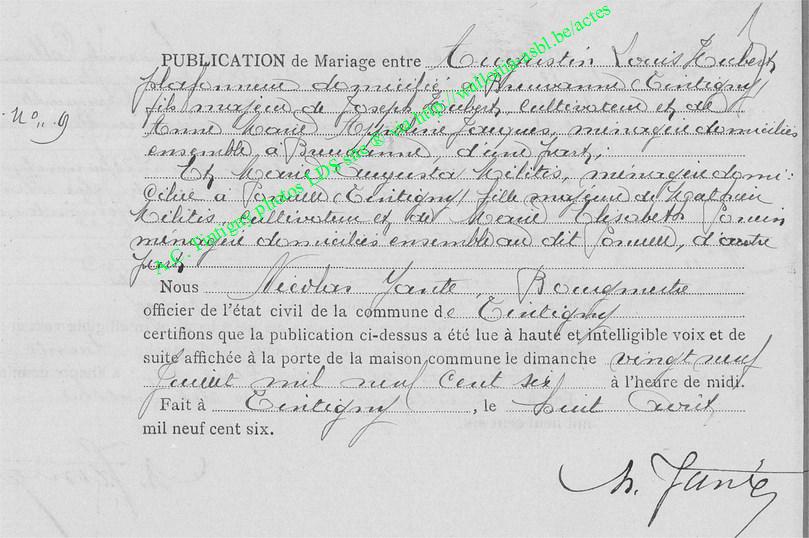 PUBLICATION de Mariage entre Augustin Louis Hubert
plafonneur domicilié Breuvanne (Tintigny)
fils majeur de Joseph Hubert, cultivateur et de
N° 9
Anne Marie Jacques, ménagère domiciliés
ensemble à Breuvanne, d'une part;
Et Marie Augusta Militis, ménagère domi-
ciliée à (Tintigny) fille majeure de Mathieu
Militis, cultivateur et de Marie Elisabeth
ménagère domiciliés ensemble au dit, d'autre
part
Nous Nicolas Jante, Bourgmestre
officier de l'état civil de la commune de Tintigny
certifions que la publication ci-dessus a été lue à haute et intelligible voix et de
suite affichée à la porte de la maison commune le dimanche vingt neuf
Juillet mil neuf cent six à l'heure de midi.
Fait à Tintigny, le huit août
mil neuf cent six.
A.C. Tintigny photos LDS site © via http://wallonia-asbl.be/actes